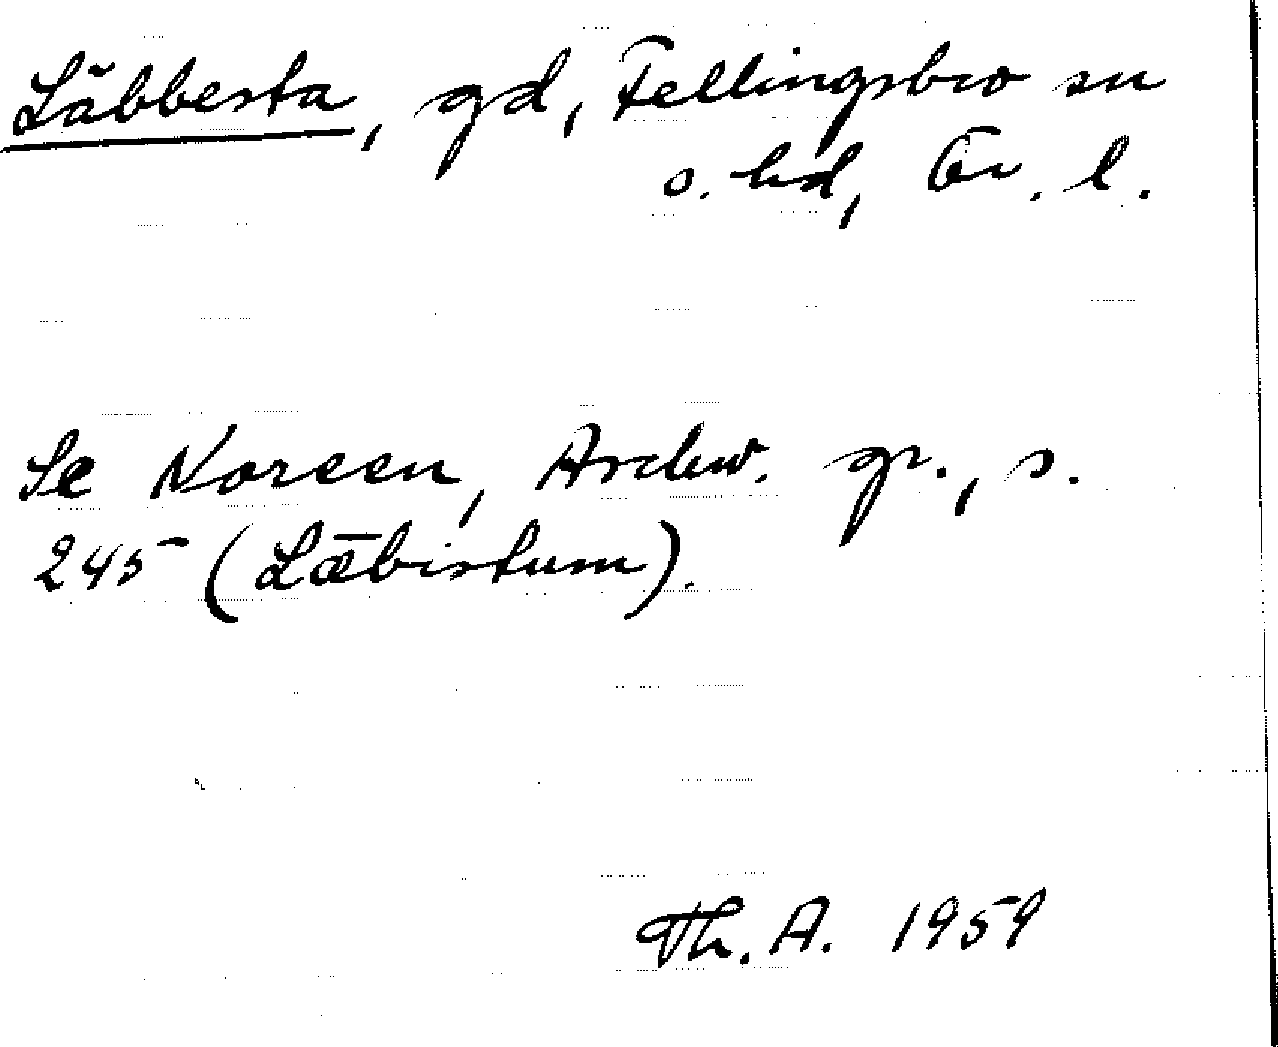 Läbbesta, gd, Fellingsbro sn
o. hd, Ör. l.
Se Noreen, Aschw. gr., s.
245 (Lǣbistum).
Th. A. 1959